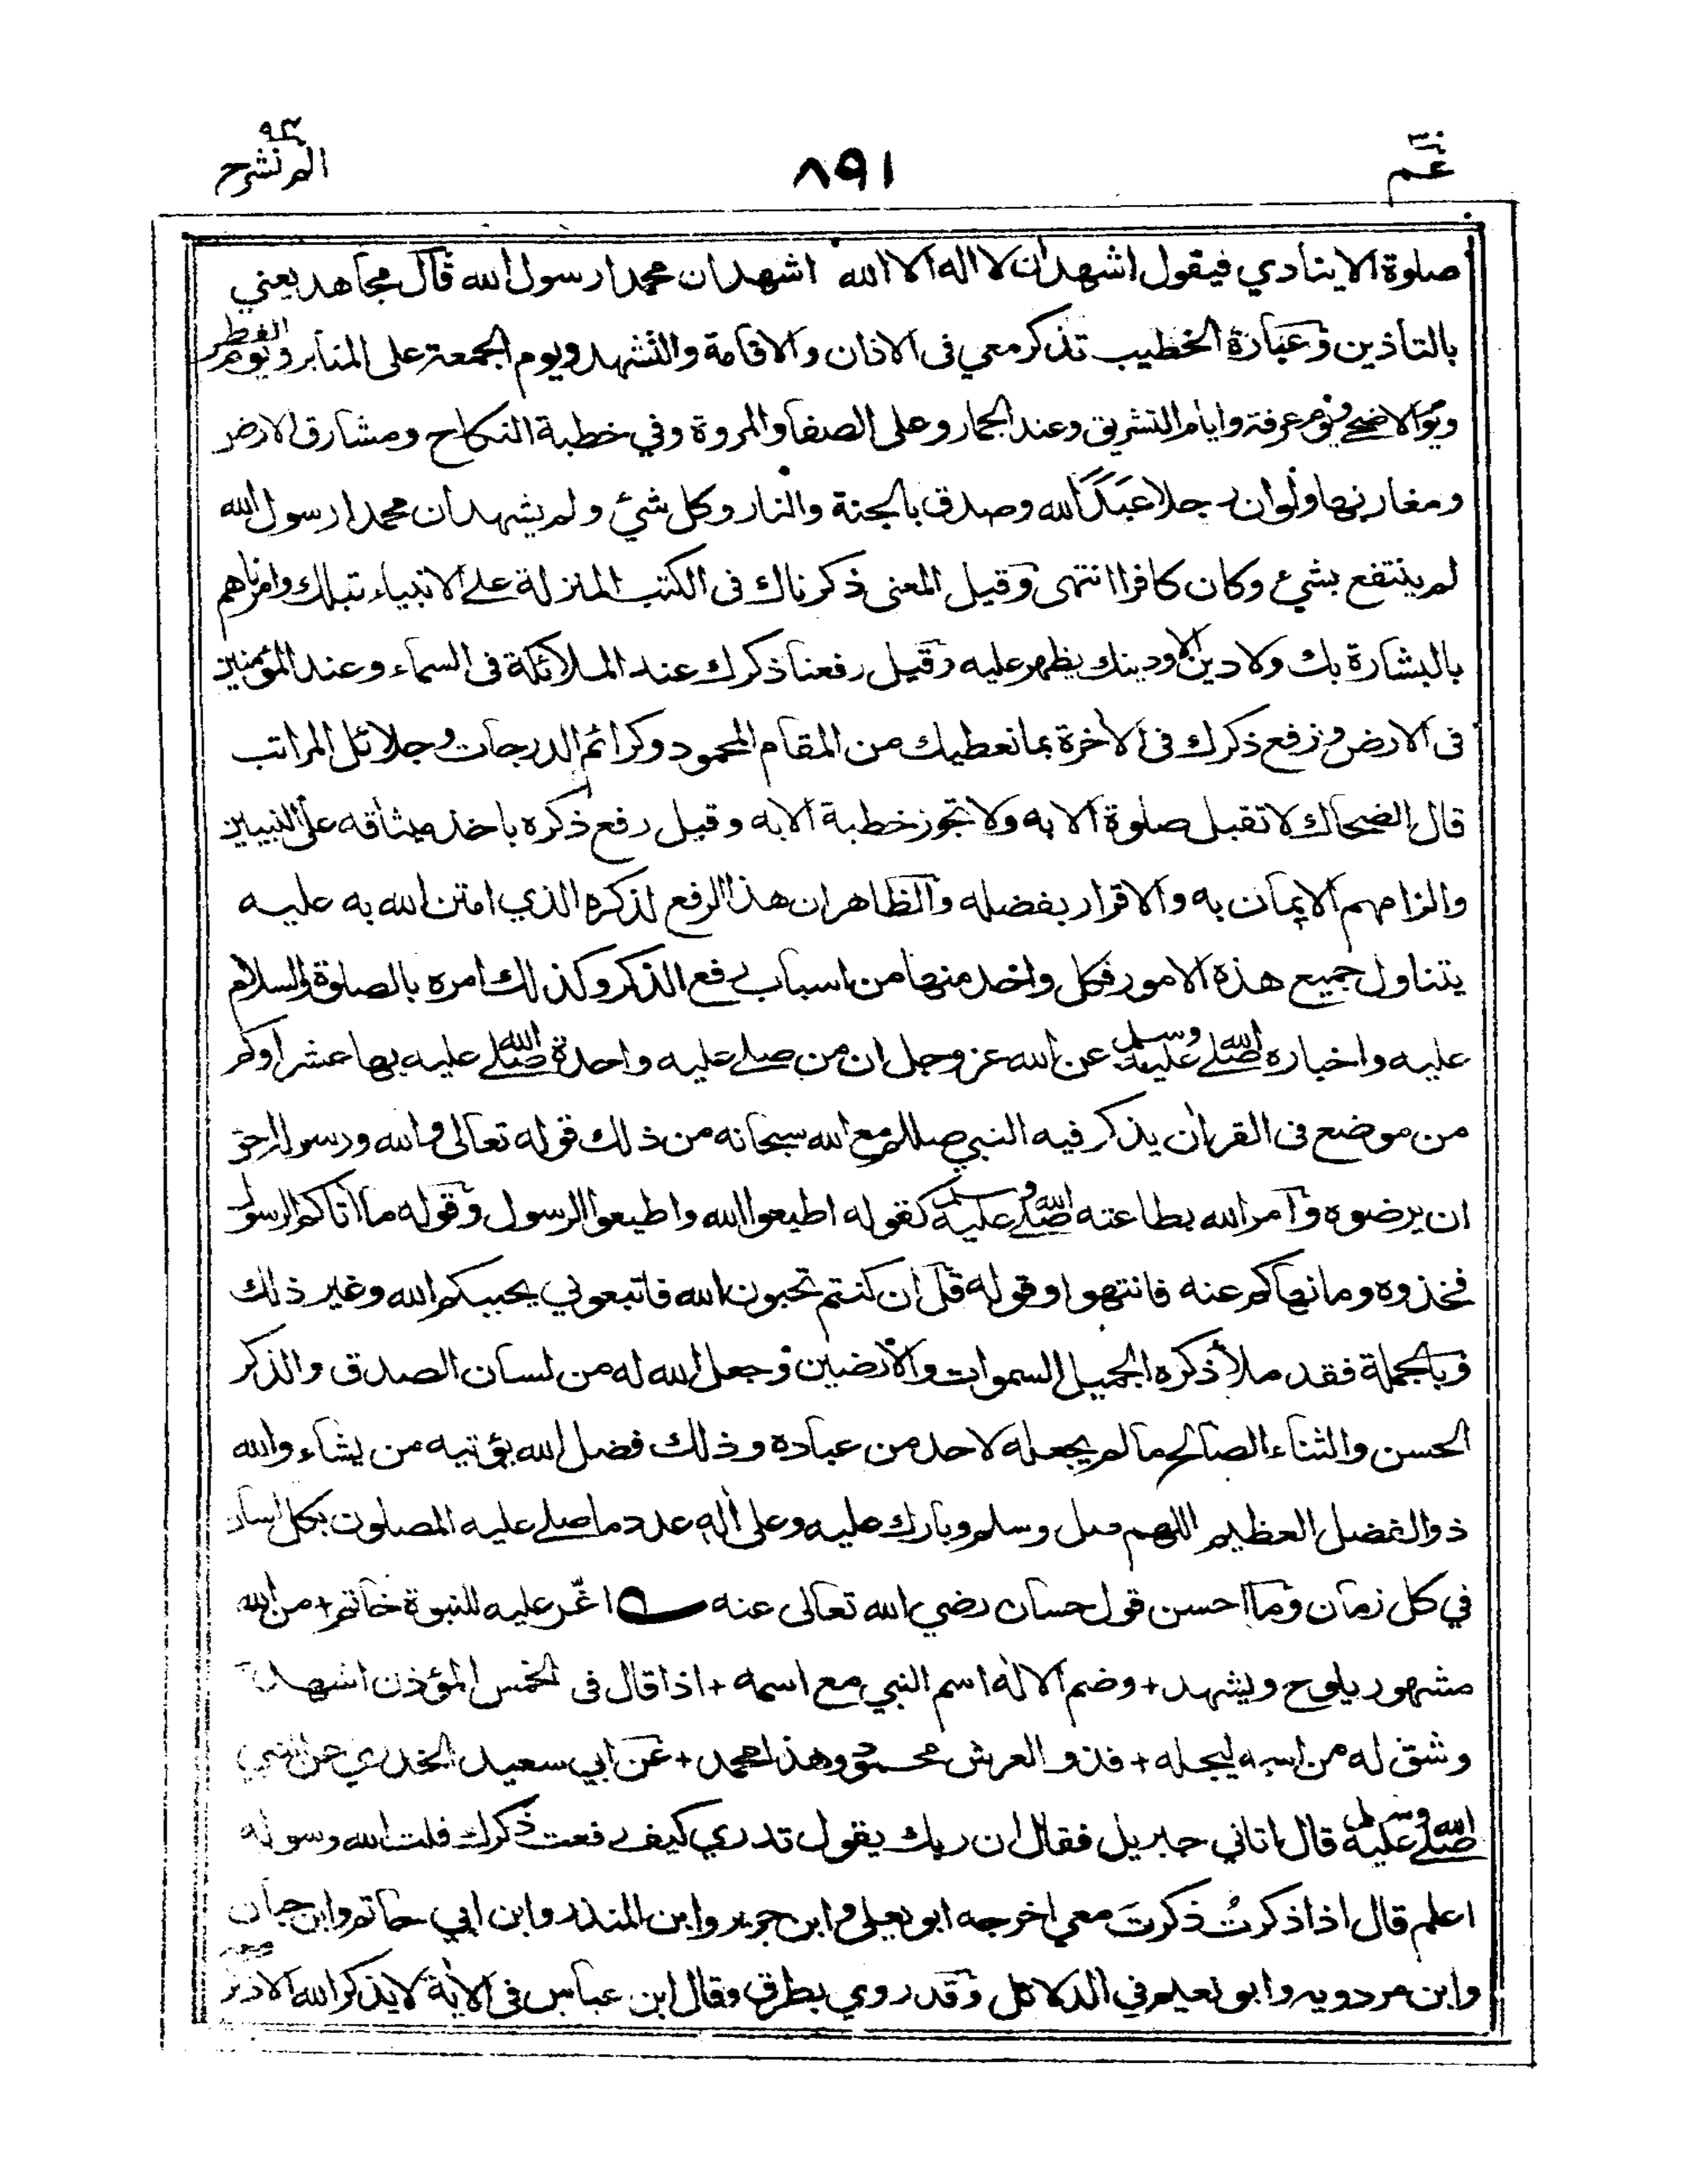 عم ٣٠
٨٩١
الم نشرح ٩٤
صلوة الا ينادي فيقول اشهد ان لا اله الا الله اشهد ان محمدا رسول الله قال مجاهد يعني
بالتأذين وعبارة الخطيب تذكر معي فى الاذان والاقامة والتشهد ويوم الجمعة على المنابر ويوم الفطر
ويوم الاضحى ويوم عرفة وايام التشريق وعند الجمار وعلى الصفا والمروة وفي خطبة النكاح ومشارق الارض
ومغاربها ولو ان رجلا عَبَدَ الله وصدق بالجنة والنار وكل شئ ولم يشهد ان محمدا رسول الله
لم ينتفع بشيء وكان كافرا انتهى وقيل المعنى ذكرناك فى الكتب المنزلة على الانبياء قبلك وامرناهم
بالبشارة بك ولا دين الا ودينك يظهر عليه وقيل رفعنا ذكرك عند الملائكة فى السماء وعند المؤمنين
فى الارض ونرفع ذكرك فى الاخرة بما نعطيك من المقام المحمود وكرائم الدرجات وجلائل المراتب
قال الضحاك لا تقبل صلوة الا به ولا تجوز خطبة الا به وقيل رفع ذكره باخذ ميثاقه على النبيين
والزامهم الايمان به والاقرار بفضله والظاهر ان هذا الرفع لذكره الذي امتن الله به عليه
يتناول جميع هذه الامور فكل واحد منها من اسباب رفع الذكر وكذلك امره بالصلوة والسلام
عليه واخباره صلى الله عليه وسلم عن الله عز وجل ان من صلى عليه واحدة صلى الله عليه بها عشرا وكم
من موضع فى القران يذكر فيه النبي صللم مع الله سبحانه من ذلك قوله تعالى والله ورسوله احق
ان يرضوه وامر الله بطاعته صلى الله عليه وسلم كقوله اطيعوا الله واطيعوا الرسول وقوله ما اتاكم الرسول
فخذوه وما نهاكم عنه فانتهوا وقوله قل ان كنتم تحبون الله فاتبعوني يحببكم الله وغير ذلك
وبالجملة فقد ملأ ذكره الجميل السموات والارضين وجعل الله له من لسان الصدق والذكر
الحسن والثناء الصالح ما لم يجعله لاحد من عباده وذلك فضل الله يؤتيه من يشاء والله
ذو الفضل العظيم اللهم صل وسلم وبارك عليه وعلى أله عدد ما صلى عليه المصلون بكل لسان
في كل زمان وما احسن قول حسان رضي الله تعالى عنه اغّر عليه للنبوة خاتم + من الله
مشهور يلوح ويشهد + وضم الاله اسم النبي مع اسمه + اذا قال فى الخمس المؤذن اشهد
وشق له من اسمه ليجله + فذو العرش محمود وهذا محمد + عن ابي سعيد الخدري عن النبي
صلى الله عليه وسلم قال اتاني جبريل فقال ان ربك يقول تدري كيف رفعت ذكرك قلت الله ورسوله
اعلم قال اذا ذكرتُ ذكرتَ معي اخرجه ابو يعلى وابن جرير وابن المنذر وابن ابي حاتم وابن حبان
وابن مردويه وابو نعيم في الدلائل وقد روي بطرق وقال ابن عباس فى الاية لا يذكر الله الا ذكر معه